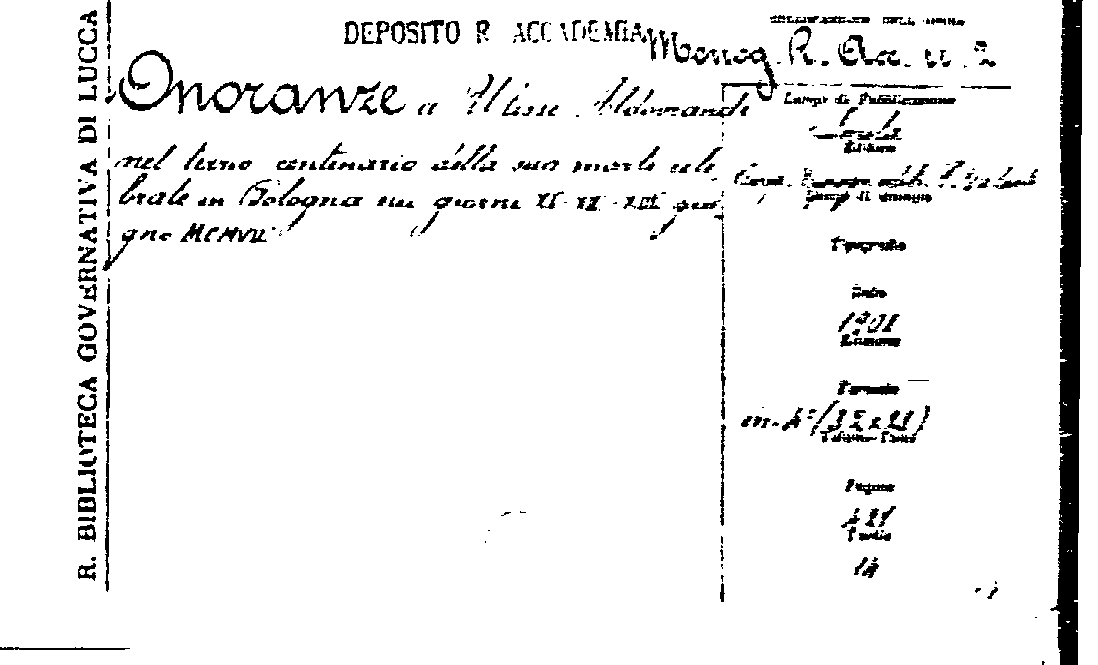 R. BIBLIOTECA GOVERNATIVA DI LUCCA
DEPOSITO R ACCADEMIA
Monog. R. Acc. n. 2
Onoranze a Ulisse Aldrovandi
nel terzo centenario della sua morte cele
brate in Bologna nei giorni XI-XII-XIII giu
gno MCMVII
Luogo di Pubblicazione
Imola
Editore
Coop.
Luogo di stampa
Tipografia
Data
Edizione
Formato
in-4°
Pagine
Tavole